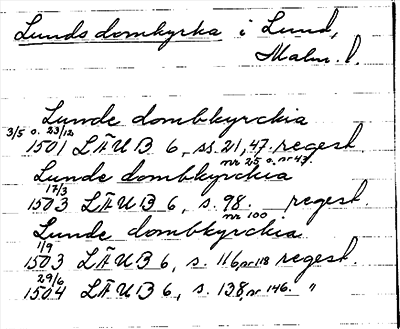 Lunds domkyrka i Lund,
Malm. l.
Lunde dombkyrckia
3/5 o. 23/12
1501 LÄUB 6, ss. 21, 47. regest.
nr 25 o. nr 47.
Lunde dombkyrckia
17/3
1503 LÄUB 6, s. 98. regest.
nr 100
Lunde dombkyrckia
1/9
1503 LÄUB 6, s. 116, nr 118 regest.
29/6
1504 LÄUB 6, s. 138, nr 146. "